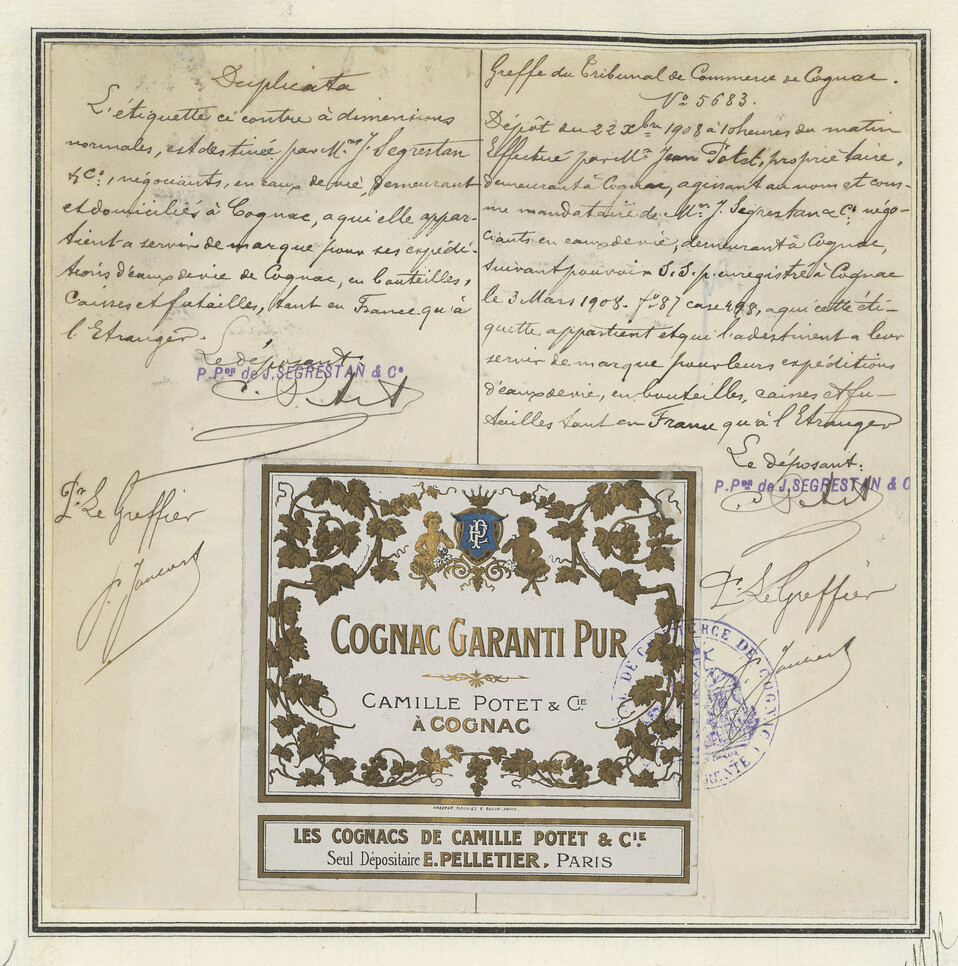 Duplicata
L'étiquette ci contre à dimensions
normales, est destinée par Mrs J. Segrestan
& Co, négociants, en eaux de vie, demeurant
et domiciliés à Cognac, a qu'elle appar-
tient a servir de marque pour ses expédi-
tions d'eaux de vie de Cognac, en bouteilles,
Caisses et futailles, tant en France qu'à
l'Etranger.
Le déposant
P. Pon de J. SEGRESTAN & Co
Pr Le Greffier
Greffe du Tribunal de Commerce de Cognac.
No 5683.
Dépôt du 22 Xbre 1908 à 10 heures du matin
Effectué par Mr Jean Potet, propriétaire,
demeurant à Cognac, agissant au nom et com-
me mandataire de Mrs J. Segrestan & Co négo-
ciants en eaux de vie, demeurant à Cognac,
suivant pouvoir S.S.p. enregistré à Cognac
le 3 Mars 1908. fo 87 case 498, a qui cette éti-
quette appartient et qui l'a destinent a leur
servir de marque pour leurs expéditions
d'eaux de vie, en bouteilles, caisses et fu-
tailles tant en France qu'à l'Etranger
Le déposant:
P. Pon de J. SEGRESTAN & C
Pr Le Greffier
COGNAC GARANTI PUR
CAMILLE POTET & CIE
À COGNAC
LES COGNACS DE CAMILLE POTET & CIE.
Seul Dépositaire E. PELLETIER, PARIS
DE COMMERCE DE COGNAC